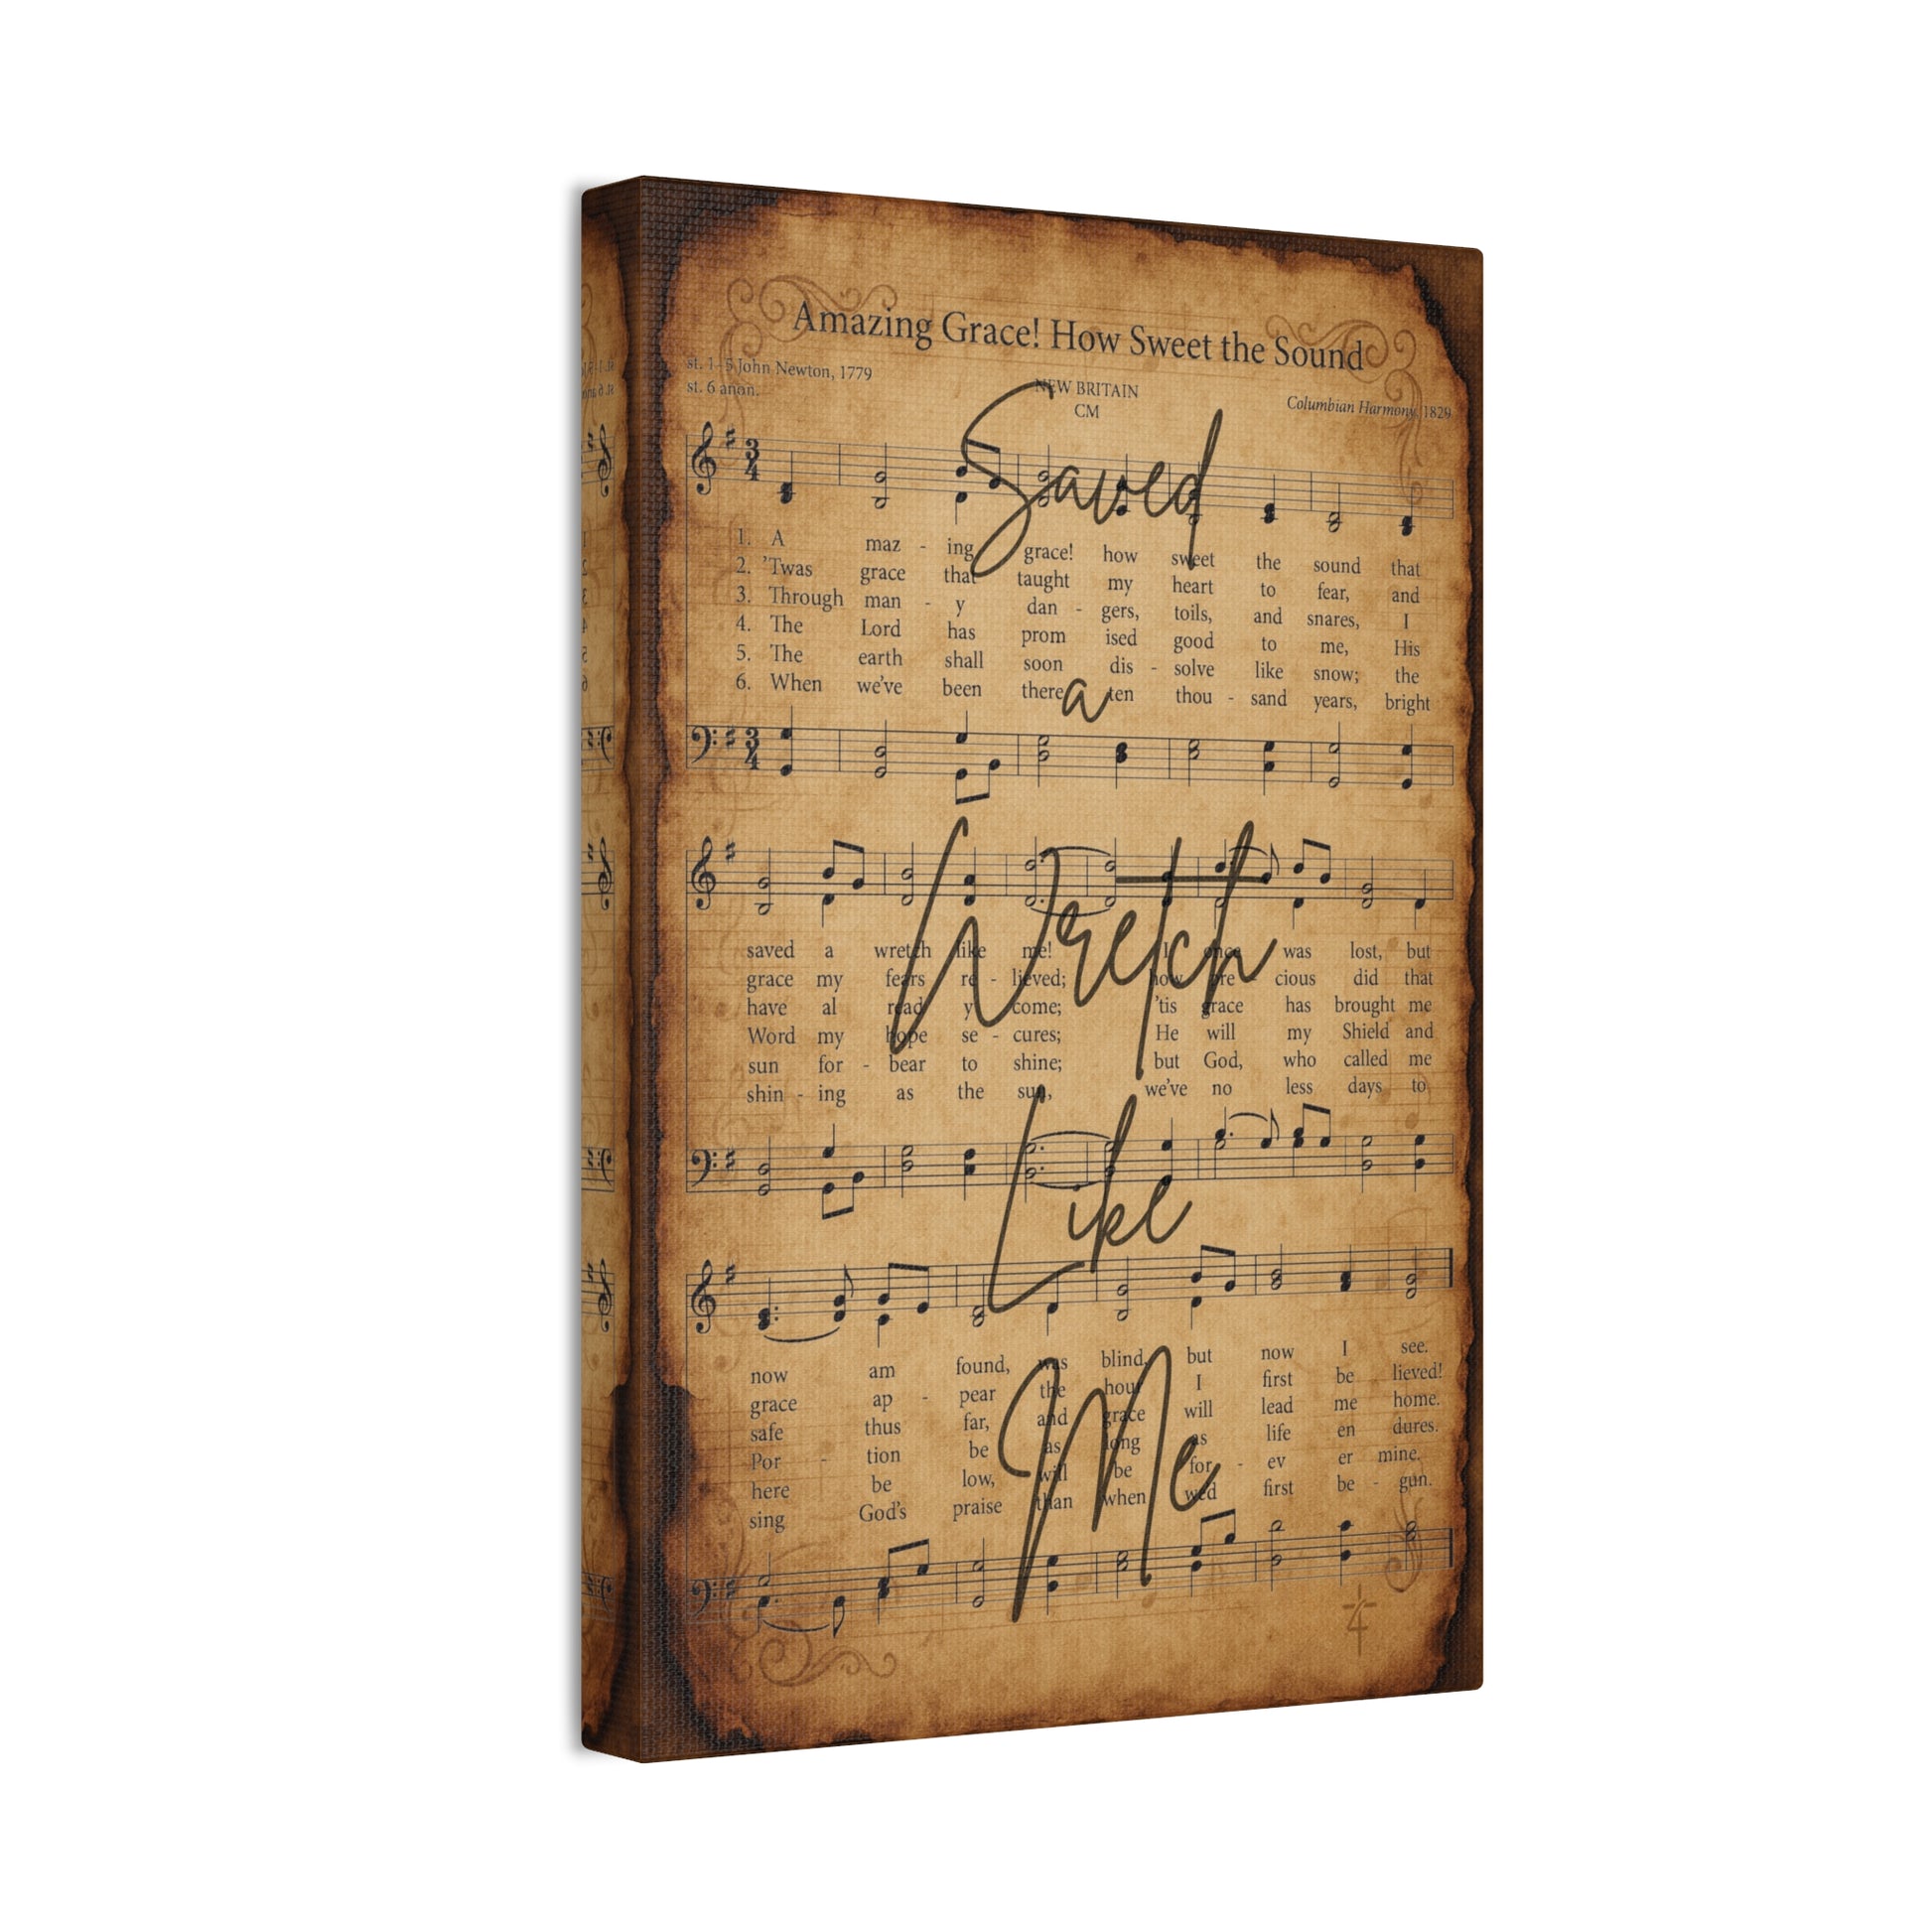 Amazing Grace! How Sweet the Sound
st. 1-5 John Newton, 1779
st. 6 anon.
NEW BRITAIN
CM
Columbian Harmony, 1829
Saved
3
4
1. A maz - ing grace! how sweet the sound that
2. 'Twas grace that taught my heart to fear, and
3. Through man - y dan - gers, toils, and snares, I
4. The Lord has prom ised good to me, His
5. The earth shall soon dis - solve like snow; the
6. When we've been there ten thou - sand years, bright
a
3
4
Wretch
saved a wretch like me! I once was lost, but
grace my fears re - lieved; how pre - cious did that
have al read y come; 'tis grace has brought me
Word my hope se - cures; He will my Shield and
sun for - bear to shine; but God, who called me
shin - ing as the sun, we've no less days to
Like
now am found, was blind, but now I see.
grace ap - pear the hour I first be lieved!
safe thus far, and grace will lead me home.
Por - tion be as long as life en dures.
here be low, will be for - ev er mine.
sing God's praise than when wed first be - gun.
Me